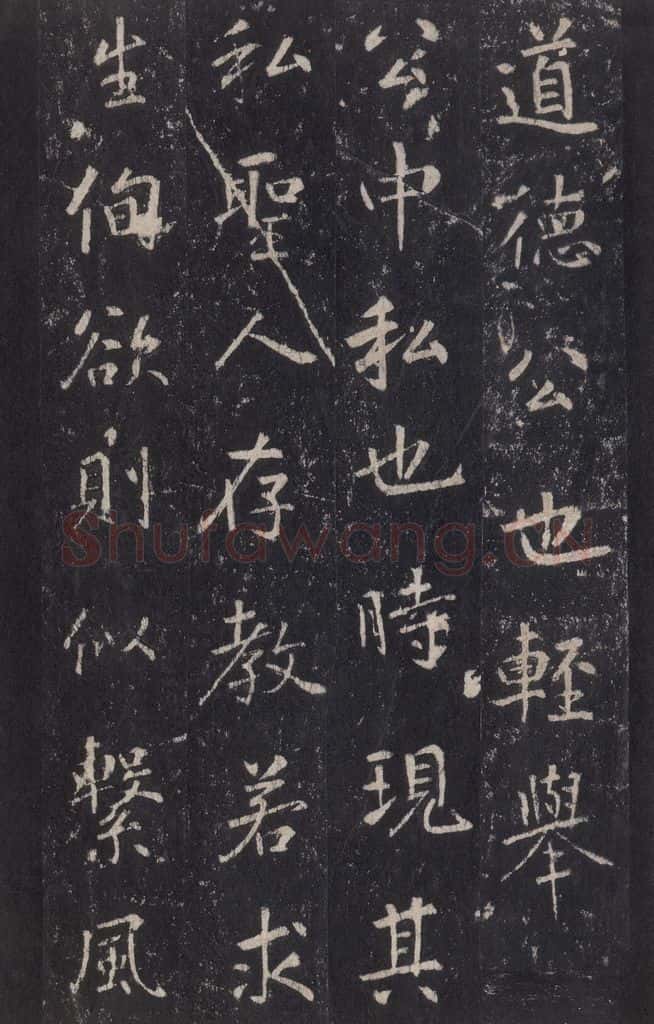 道德公也輕舉
公中私也時現其
私聖人存教若求
生徇欲則似繫風
Shufawang.CN